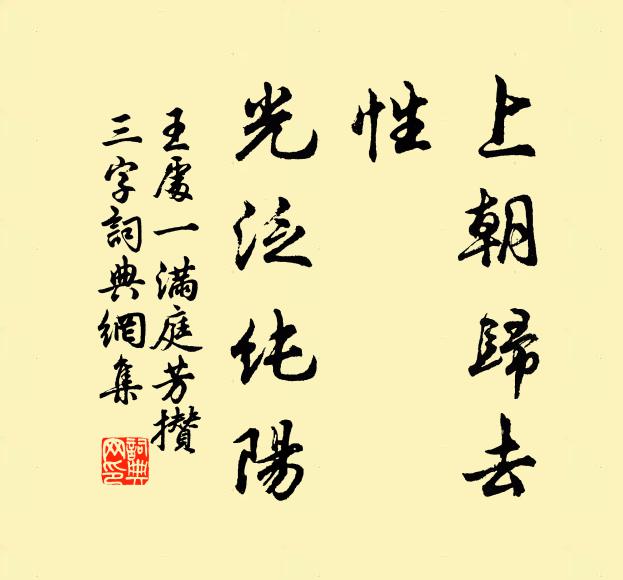 上朝歸去
性
光泛純陽
王處一滿庭芳攢
三字詞典網集
詞典
网印